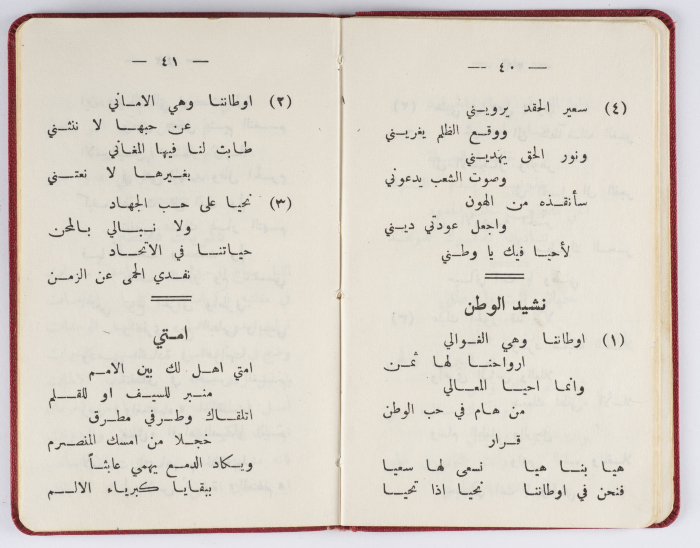 — ٤٠ —
(٤) سعير الحقد يرويني
ووقع الظلم يغريني
ونور الحق يهديني
وصوت الشعب يدعوني
سأنقذه من الهون
واجعل عودتي ديني
لأحيا فيك يا وطني
نشيد الوطن
(١) اوطاننا وهي الغوالي
ارواحنا لها ثمن
وانما احيا المعالي
من هام في حب الوطن
قرار
هيا بنا هيا نسعى لها سعيا
فنحن في اوطاننا نحيا اذا تحيا
— ٤١ —
(٢) اوطاننا وهي الاماني
عن حبها لا ننثني
طابت لنا فيها المغاني
بغيرها لا نعتني
(٣) نحيا على حب الجهاد
ولا نبالي بالمحن
حياتنا في الاتحاد
نفدي الحمى عن الزمن
امتي
امتي اهل لك بين الامم
منبر للسيف او للقلم
اتلقاك وطرفي مطرق
خجلا من امسك المنصرم
ويكاد الدمع يهمي عابثاً
ببقايا كبرياء الالم